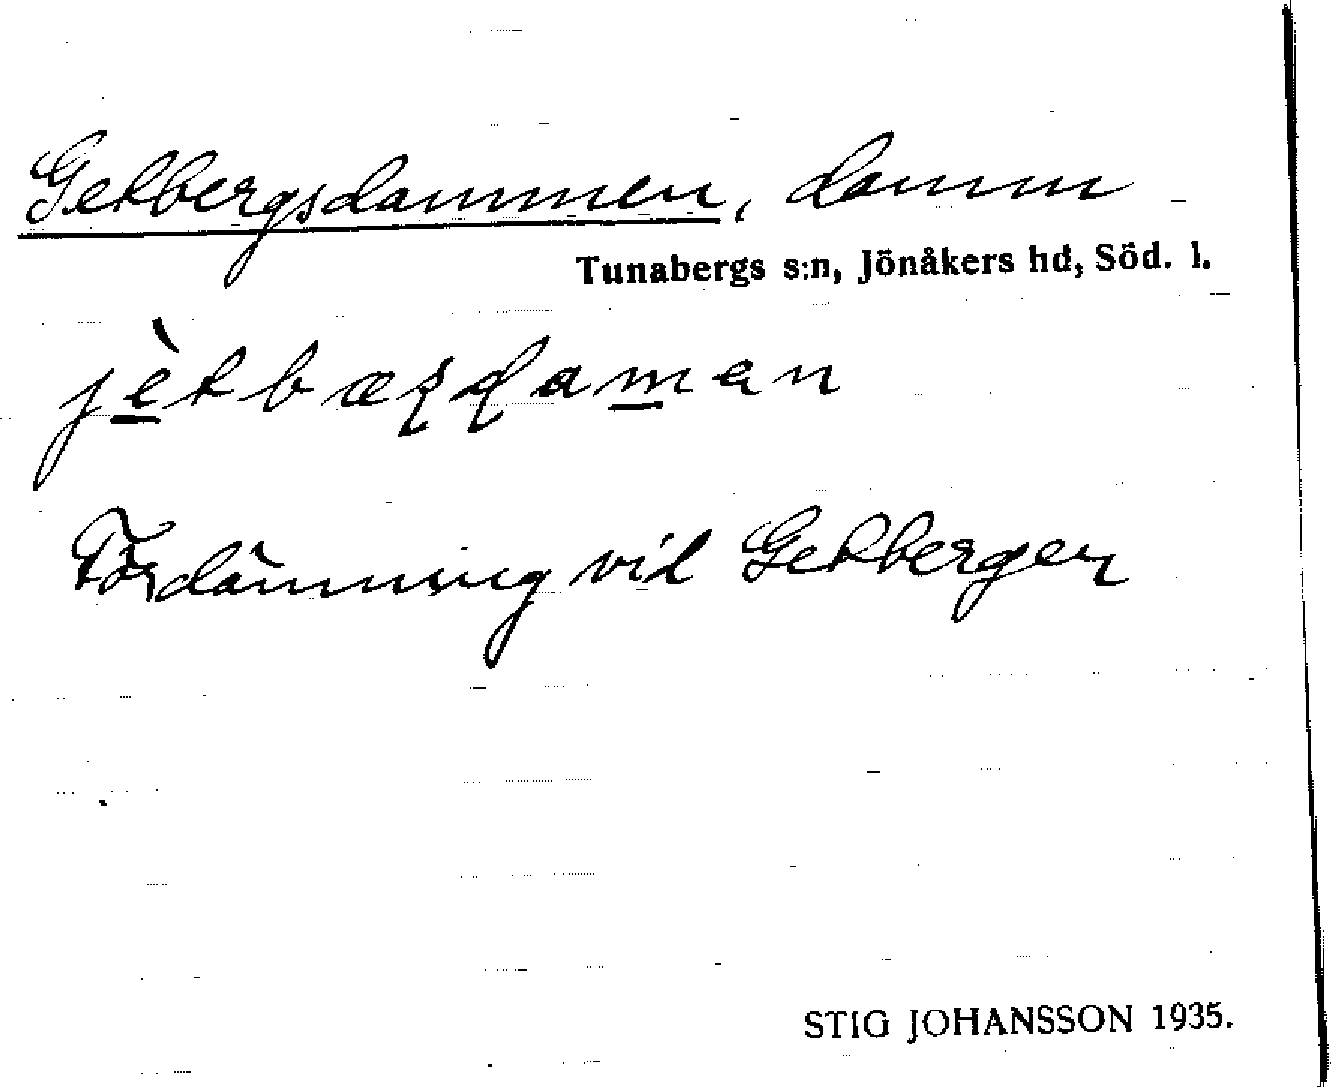 Getbergsdammen, damm
Tunabergs s:n, Jönåkers hd, Söd. l.
Fördämning vid Getberget
STIG JOHANSSON 1935.